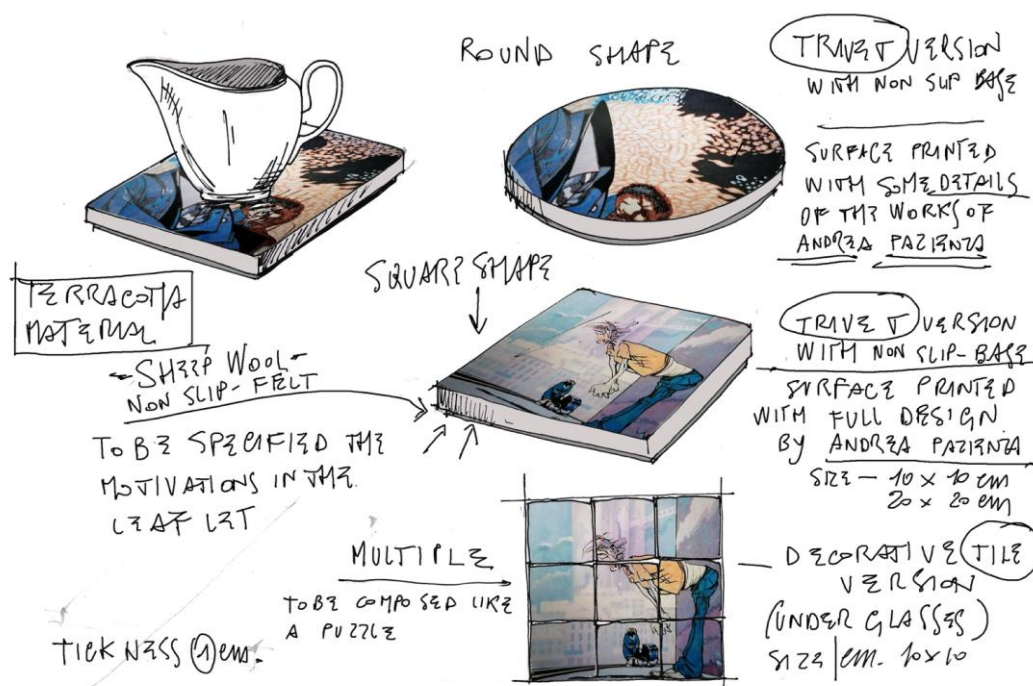 ROUND SHAPE
TRIVET VERSION
WITH NON SLIP BASE
SURFACE PRINTED
WITH SOME DETAILS
OF THE WORKS OF
ANDREA PAZIENZA
SQUARE SHAPE
TERRACOTTA
MATERIAL
SHEEP WOOL
NON SLIP-FELT
TO BE SPECIFIED THE
MOTIVATIONS IN THE
LEAF LET
TRIVET VERSION
WITH NON SLIP-BASE
SURFACE PRINTED
WITH FULL DESIGN
BY ANDREA PAZIENZA
SIZE - 10 x 10 cm
20 x 20 cm
MULTIPLE
TO BE COMPOSED LIKE
A PUZZLE
DECORATIVE TILE
VERSION
(UNDER GLASSES)
SIZE cm. 10x10
TICKNESS 1 cm.